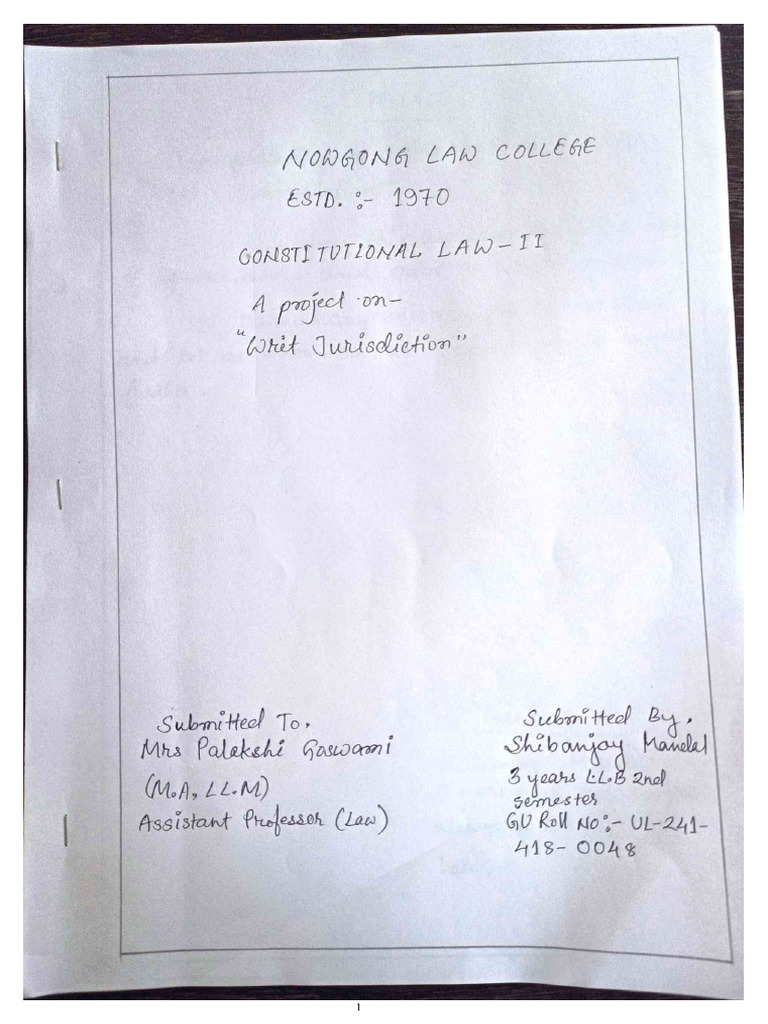 NOWGONG LAW COLLEGE
ESTD. :- 1970
CONSTITUTIONAL LAW-II
A project on-
"Writ Jurisdiction"
Submitted To,
Mrs Palakshi Goswami
(M.A, LL.M)
Assistant Professor (Law)
Submitted By,
Shibanjay Mandal
3 years LL.B 2nd
semester
GU Roll No:- UL-241-
418-0048
1